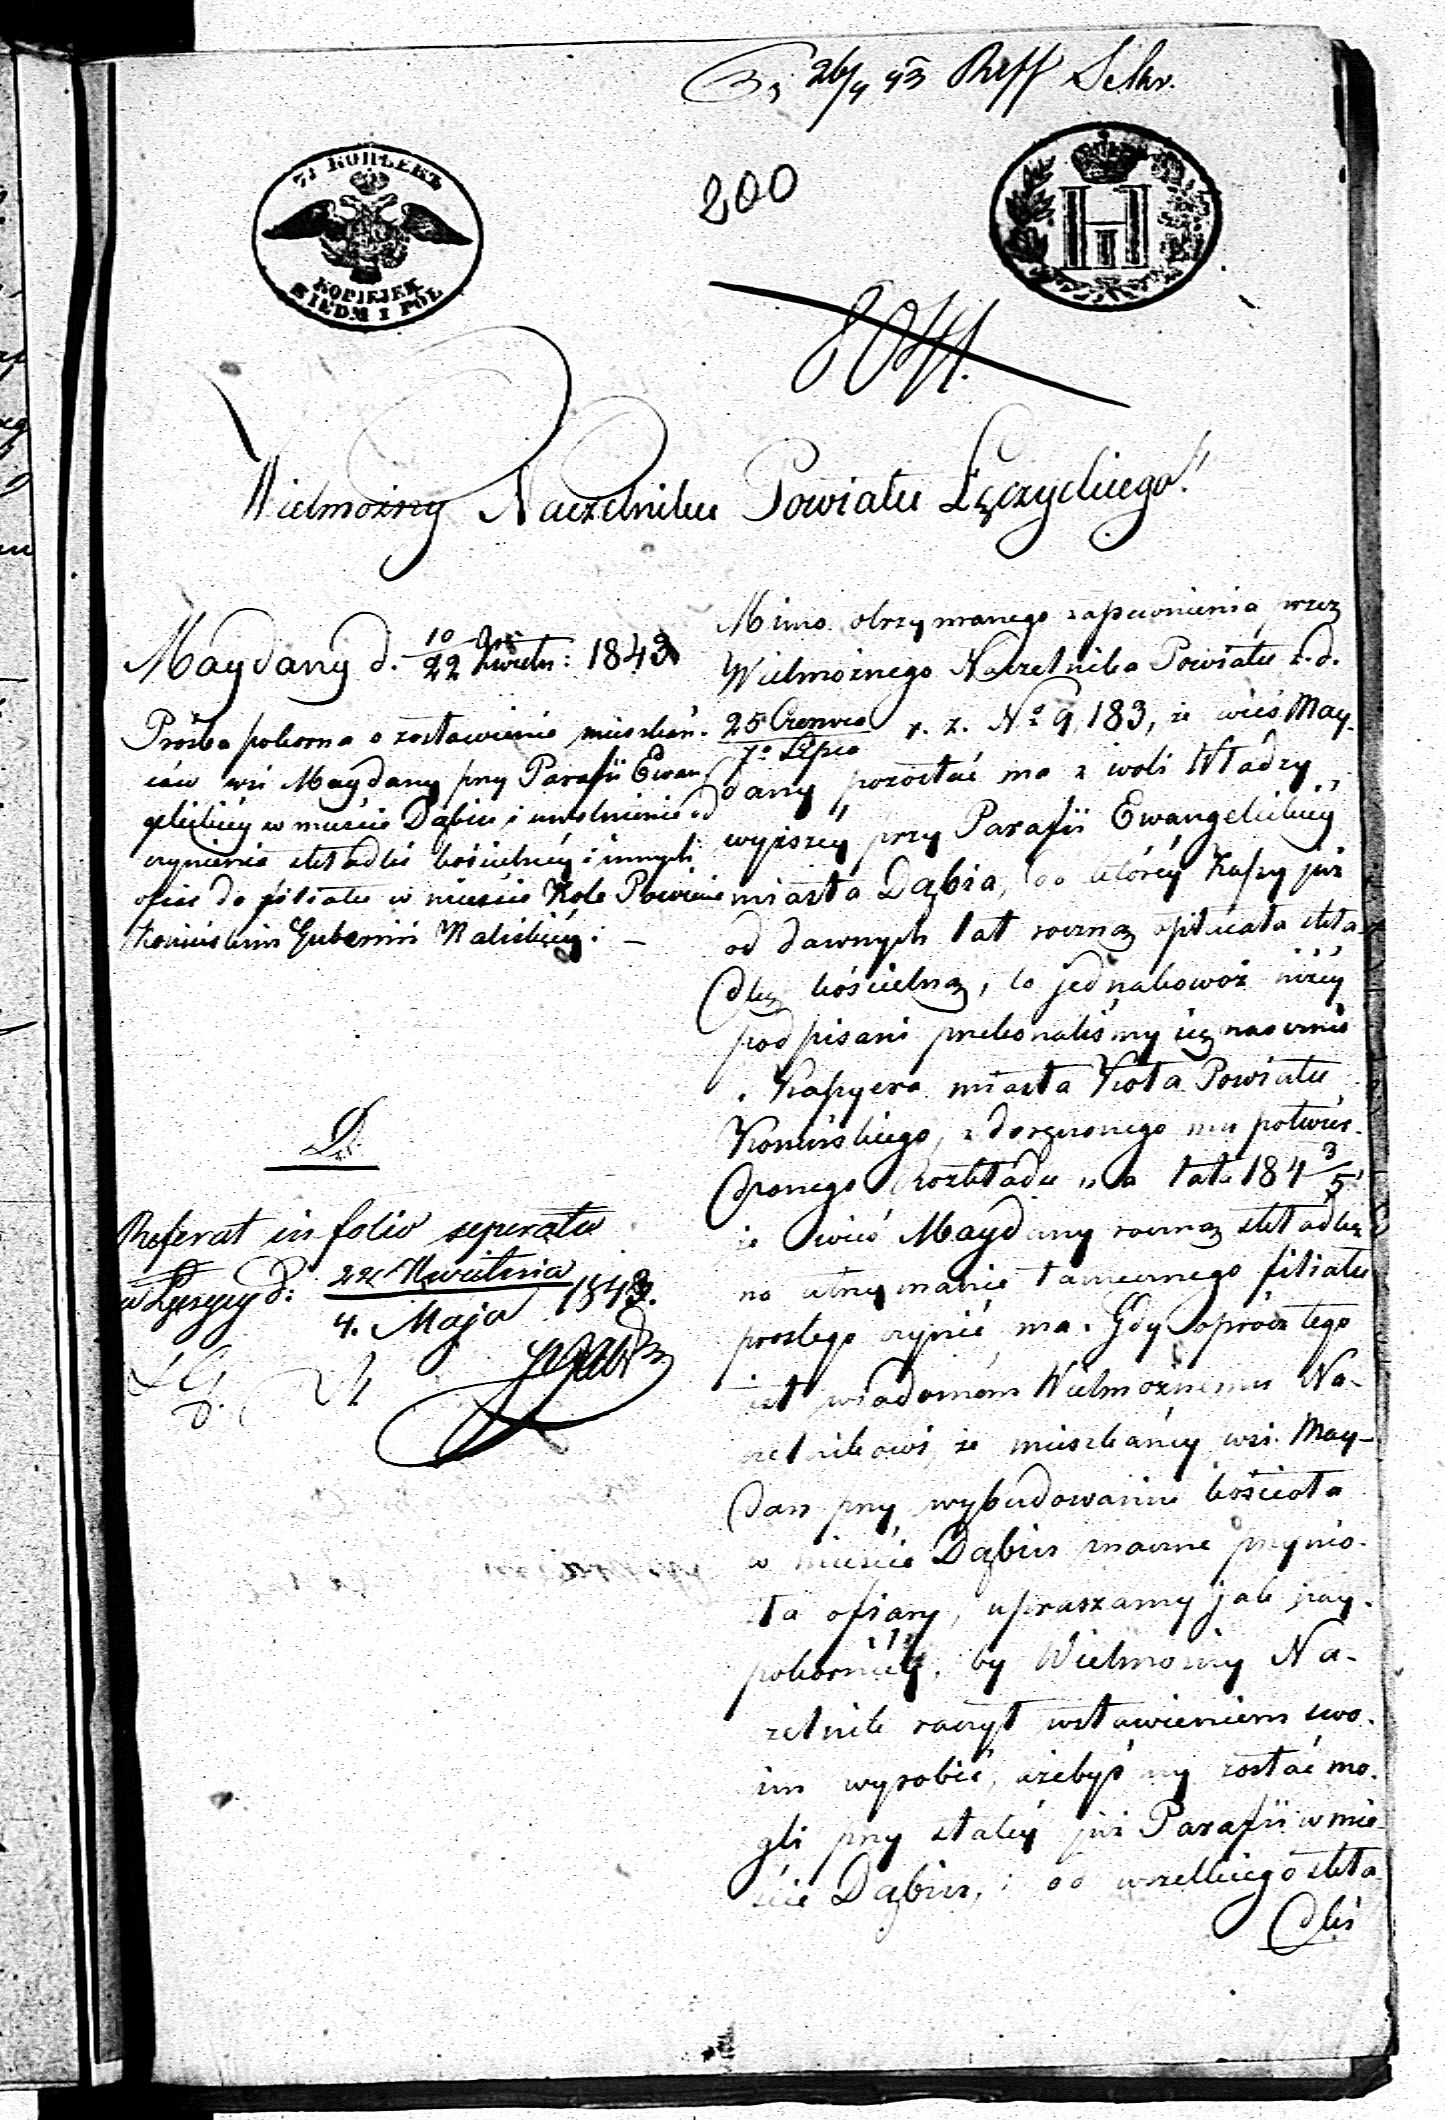 26/4 43
200
7½ КОПѢЕКЪ
KOPIEJEK
SIEDM I PÓŁ
Wielmożny Naczelniku Powiatu Łęczyckiego!
Maydany d. 10/22 Kwietn: 1843
Prośba pokorna o zostawienie mieszkań-
ców wsi Maydany przy Parafii Ewan
gelickiey w mieście Dąbiu i uwolnienie od
czynienia składki kościelnéy i innych
ofiar do filiału w mieście Kole Powiecie
Konińskim Gubernii Kaliskiéy: —
Referat in folio seperato
w Łęczycy d: 22 Kwietnia / 4. Maja 1843.
Mimo otrzymanego zapewnienia przez
Wielmożnego Naczelnika Powiatu z. d.
25 Czerwca / 7º Lipca r. z. Nº 9,183, że wieś May-
dany pozostać ma z woli Władzy
wyższéy przy Parafii Ewangelickiéy
miasta Dąbia, do któréy Kassy już
od dawnych lat roczną opłacała skła-
dkę kościelną, to jednakowoż niżéy
podpisani przekonaliśmy się naocznie
Kassyera miasta Koła Powiatu
Konińskiego, z doręczonego mu potwier-
dzonego rozkładu na lata 184 3/5
że wieś Maydany roczną składkę
na utrzymanie tamecznego filiału
prostego czynić ma. Gdy oprócz tego
jest wiadomém Wielmożnemu Na-
czelnikowi, że mieszkańcy wsi May-
dan przy wybudowaniu kościoła
w mieście Dąbiu znaczne przynio-
ła ofiary, upraszamy jak nay-
pokorniéy, by Wielmożny Na-
czelnik raczył wstawieniem swo-
im wyrobić, ażebyśmy zostać mo-
gli przy stałéy już Parafii w mie-
ście Dąbiu, i od wszelkiego skła
dki